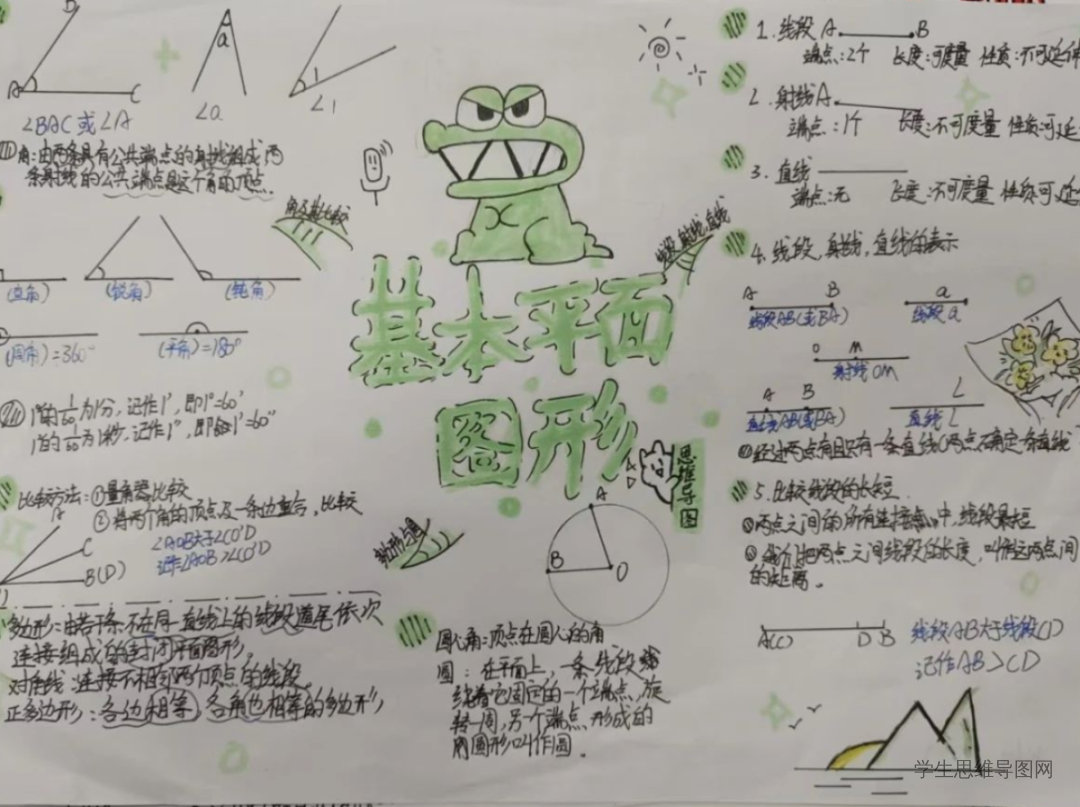 D
A
C
∠BAC或∠A
a
∠a
1
∠1
角:由两条具有公共端点的射线组成,两
条射线的公共端点是这个角的顶点.
角及其比较
(直角)
(锐角)
(钝角)
(周角)=360°
(平角)=180°
1°的1/60为1分,记作1′,即1°=60′
1′的1/60为1秒,记作1″,即1′=60″
比较方法:①量角器比较
②将两个角的顶点及一条边重合,比较
A
C
B(D)
∠AOB大于∠CO'D
记作∠AOB>∠CO'D
多边形:由若干条不在同一直线上的线段首尾依次
连接组成的封闭平面图形。
对角线:连接不相邻两个顶点的线段。
正多边形:各边相等,各角也相等的多边形
基本平面
图形
思维导图
线段,射线,直线
A
B
O
圆心角:顶点在圆心的角
圆:在平面上,一条线段
绕着它固定的一个端点,旋
转一周,另一个端点,形成的
图形叫作圆。
1.线段 A B
端点:2个 长度:可度量 性质:不可延伸
2.射线 A
端点:1个 长度:不可度量 性质:可延
3.直线
端点:无 长度:不可度量 性质:可延
4.线段,射线,直线的表示
A B
线段AB(或BA)
a
线段a
O M
射线OM
A B
直线AB(或BA)
L
直线L
经过两点有且只有一条直线(两点确定一条直线
5.比较线段的长短.
两点之间的所有连接线中,线段最短
我们把两点之间线段的长度,叫作这两点间
的距离。
A(C) D B
线段AB大于线段CD
记作AB>CD
学生思维导图网